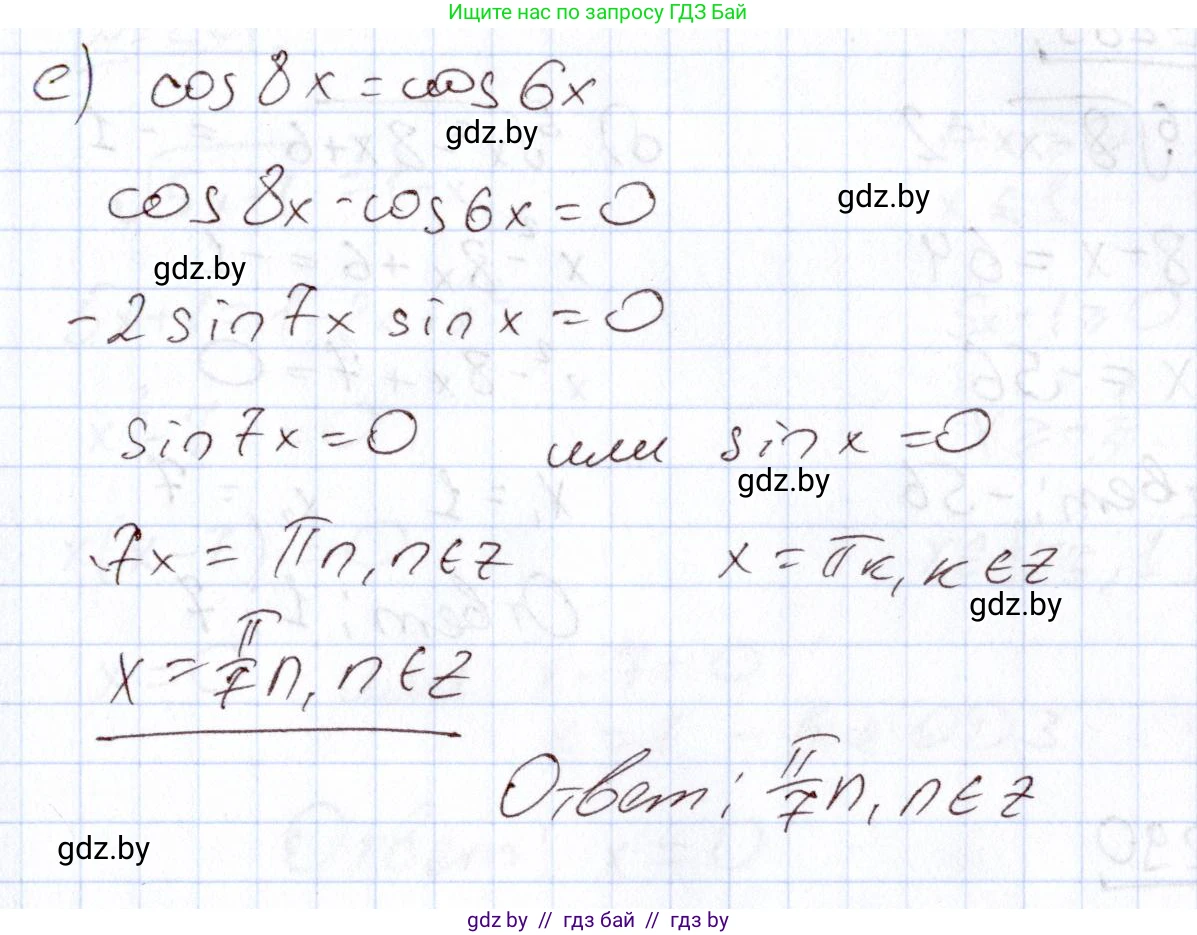 Ищите нас по запросу ГДЗ Бай
е) cos 8x = cos 6x
gdz.by
cos 8x - cos 6x = 0
gdz.by
gdz.by
-2 sin 7x sin x = 0
sin 7x = 0 или sin x = 0
gdz.by
7x = πn, n ∈ z x = πк, к ∈ z
gdz.by
x = π/7 n, n ∈ z
Ответ: π/7 n, n ∈ z
gdz.by
gdz.by // гдз бай // гдз by